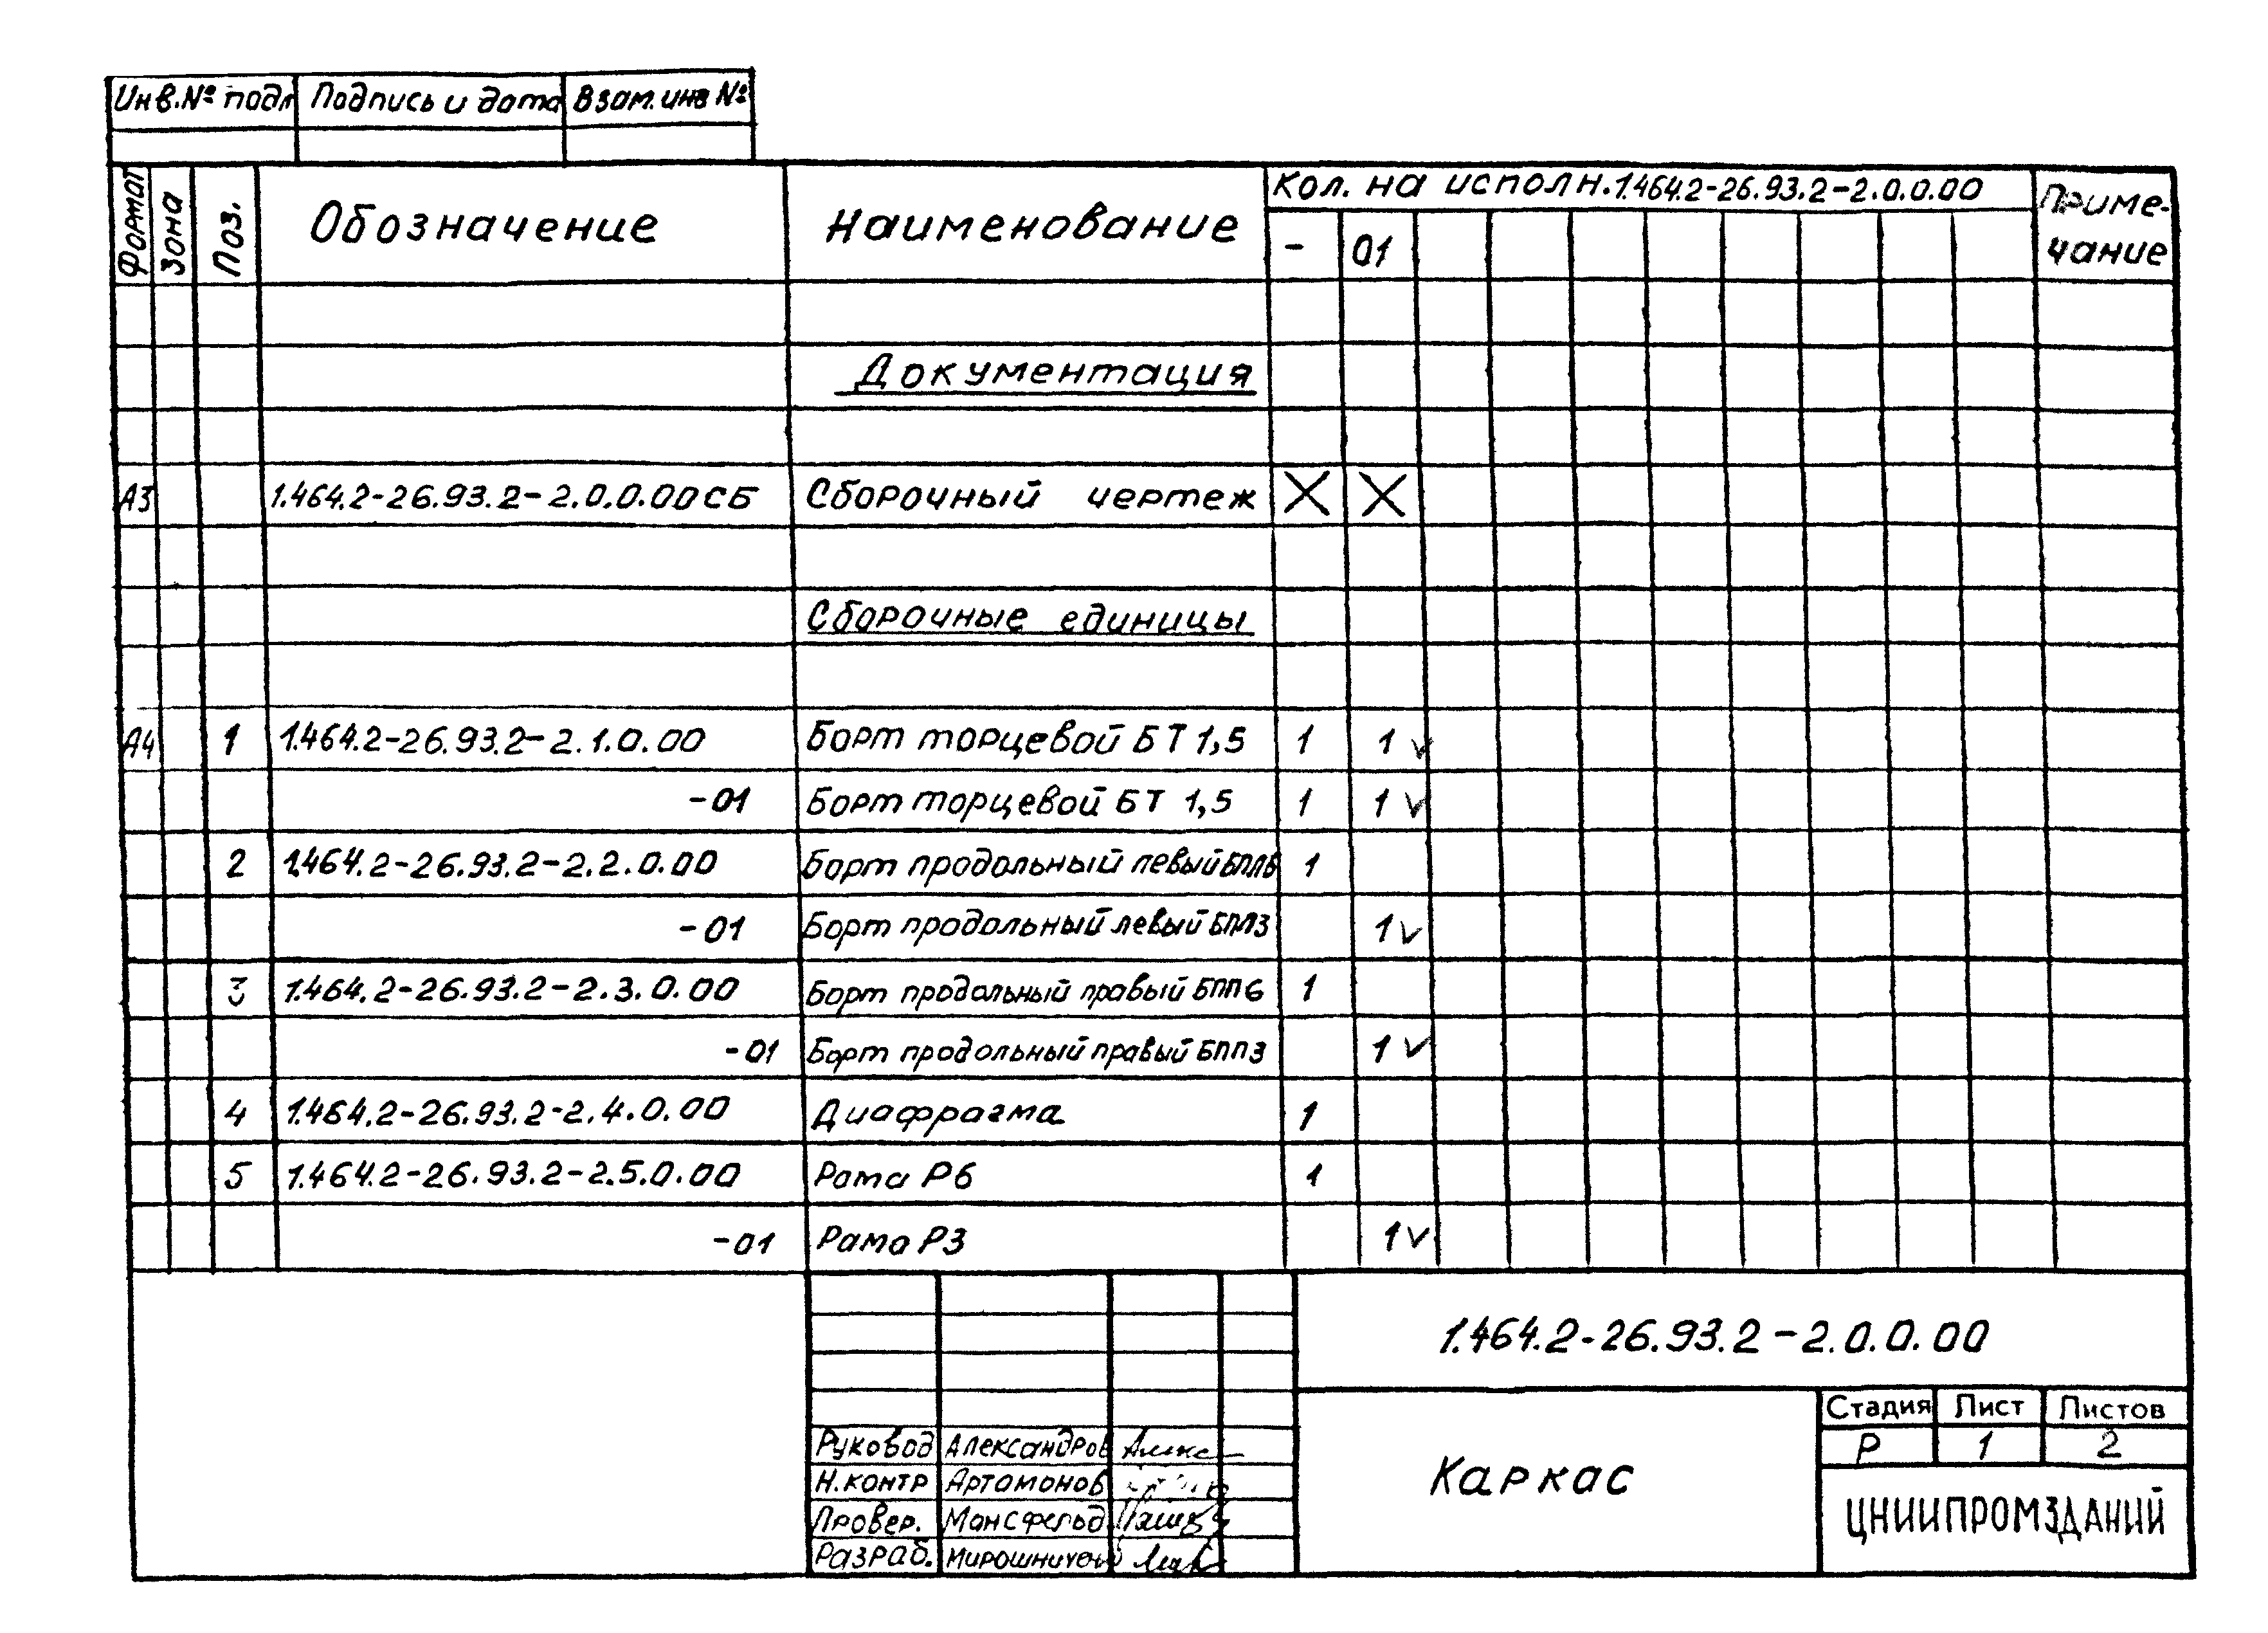 Инв.№ подл Подпись и дата Взам.инв №
Формат Зона Поз. Обозначение Наименование Кол. на исполн.1.464.2-26.93.2-2.0.0.00 Приме-
- 01 чание
Документация
А3 1.464.2-26.93.2-2.0.0.00СБ Сборочный чертеж X X
Сборочные единицы
А4 1 1.464.2-26.93.2-2.1.0.00 Борт торцевой БТ 1,5 1 1 ✓
-01 Борт торцевой БТ 1,5 1 1 ✓
2 1.464.2-26.93.2-2.2.0.00 Борт продольный левый БПЛ6 1
-01 Борт продольный левый БПЛ3 1 ✓
3 1.464.2-26.93.2-2.3.0.00 Борт продольный правый БПП6 1
-01 Борт продольный правый БПП3 1 ✓
4 1.464.2-26.93.2-2.4.0.00 Диафрагма 1
5 1.464.2-26.93.2-2.5.0.00 Рама Р6 1
-01 Рама Р3 1 ✓
1.464.2-26.93.2-2.0.0.00
Стадия Лист Листов
Р 1 2
Каркас
ЦНИИПРОМЗДАНИЙ
Руковод Александров
Н.контр Артамонов
Провер. Мансфельд
Разраб. Мирошничен